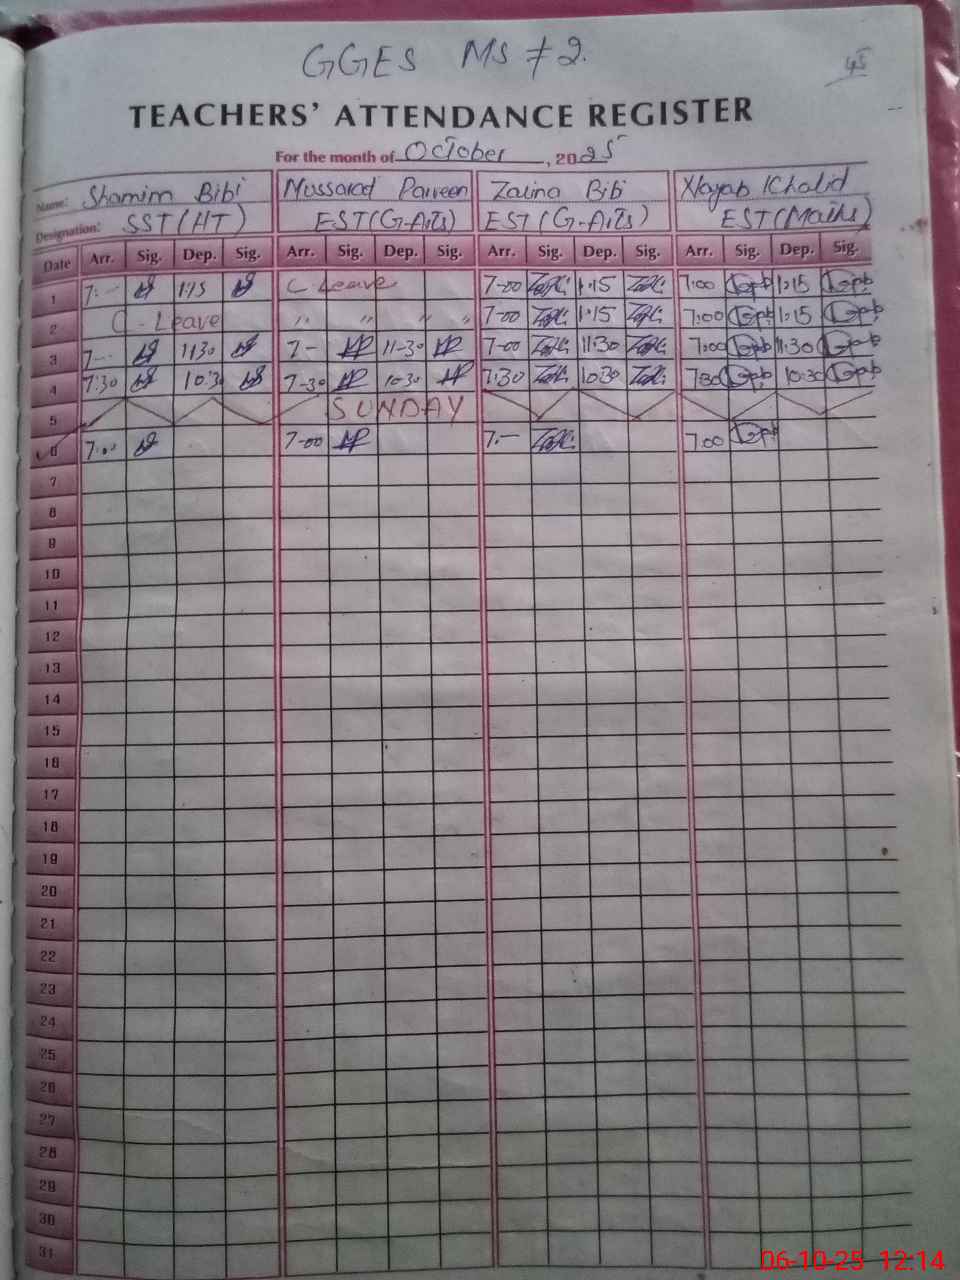 GGES MS # 2.
45
TEACHERS' ATTENDANCE REGISTER
For the month of October, 2025
Name: Shamim Bibi Mussarat Parveen Zaina Bibi Nayab Khalid
Designation: SST(HT) EST(G-Arts) EST(G-Arts) EST(Maths)
Date Arr. Sig. Dep. Sig. Arr. Sig. Dep. Sig. Arr. Sig. Dep. Sig. Arr. Sig. Dep. Sig.
1 7:-- 1:15 C-Leave 7-00 1:15 7:00 1:15
2 C-Leave " " " " 7-00 1:15 7:00 1:15
3 7-- 11:30 7- 11-30 7-00 11:30 7:00 11:30
4 7:30 10:30 7-30 10:30 7:30 10:30 7:30 10:30
5 SUNDAY
6 7:00 7-00 7:- 7:00
7
8
9
10
11
12
13
14
15
16
17
18
19
20
21
22
23
24
25
26
27
28
29
30
31
06-10-25 12:14